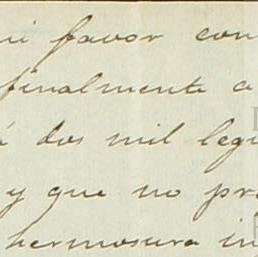 mi favor con
finalmente a
á dos mil legu
y que no pr
hermosura in